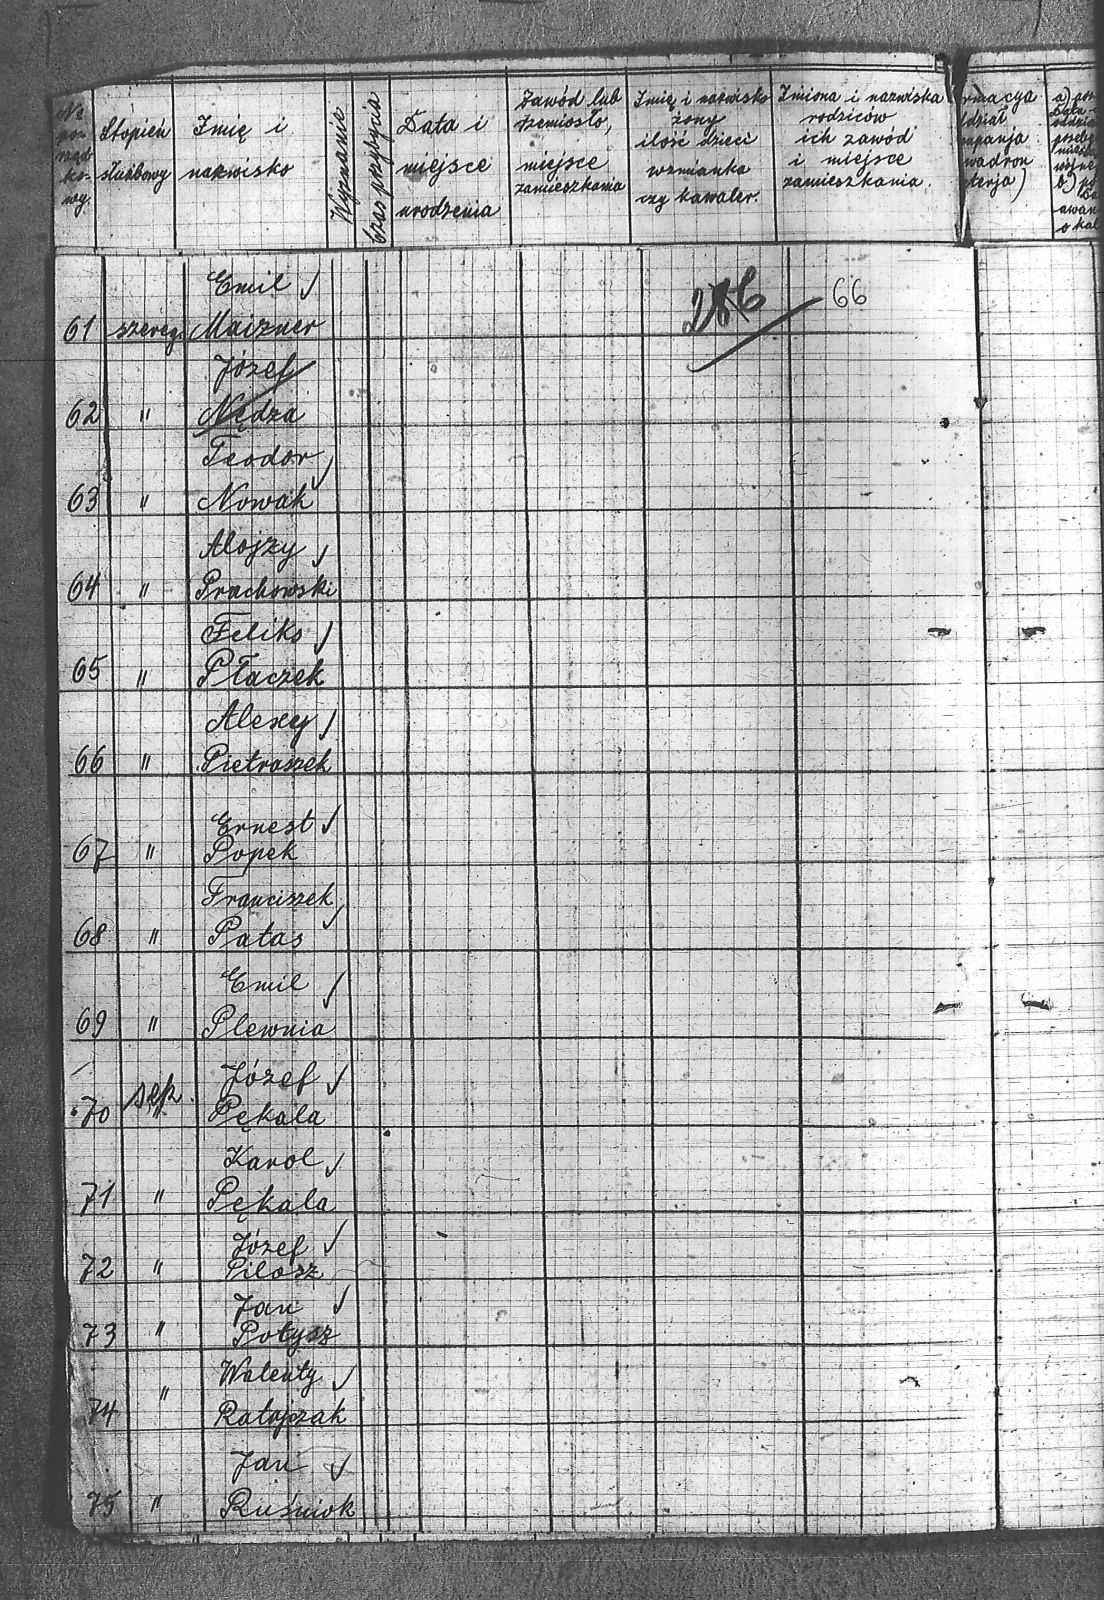 № po- rząd- ko- wy.
Stopień służbowy
Imię i nazwisko
Wyznanie
Czas przybycia
Data i miejsce urodzenia
Zawód lub rzemiosło, miejsce zamieszkania
Imię i nazwisko żony ilość dzieci wzmianka czy kawaler.
Imiona i nazwiska rodziców ich zawód i miejsce zamieszkania.
rmacja
dział
mpanja
wadron
terja)
a)
b)
286 66
Emil
61 szereg. Maizner
Józef
62 " Nędza
Teodor
63 " Nowak
Alojzy
64 " Prachowski
Feliks
65 " Płaczek
Alexy
66 " Pietraszek
Ernest
67 " Popek
Franciszek
68 " Patas
Emil
69 " Plewnia
Józef
70 sep. " Pękala
Karol
71 " Pękala
Józef
72 " Pilosz
Jan
73 " Potysz
Walenty
74 " Ratajczak
Jan
75 " Ruśniok